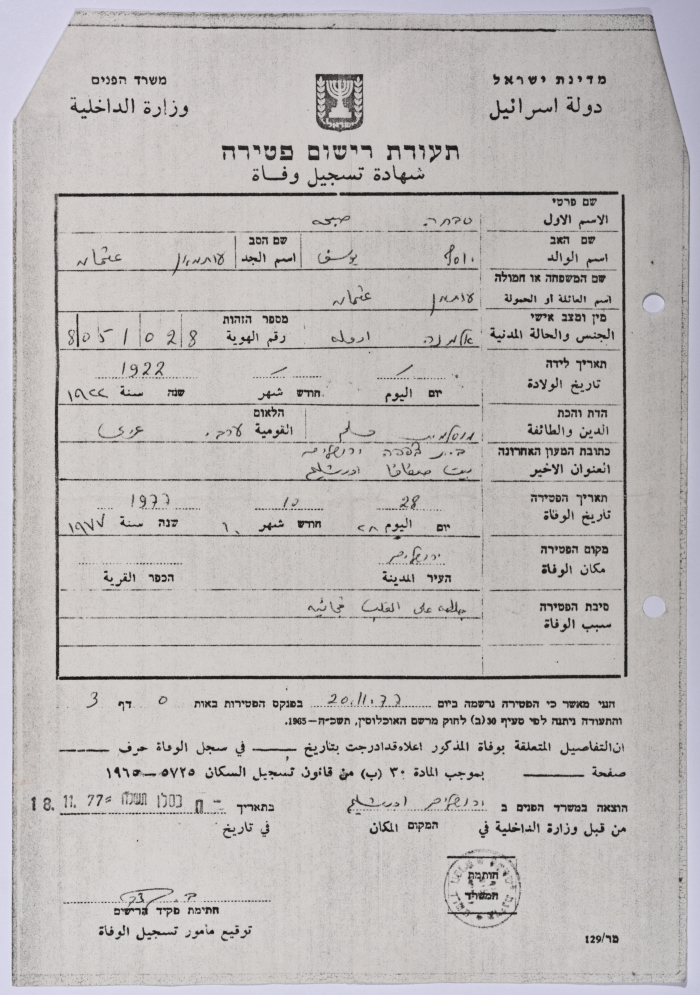 מדינת ישראל
משרד הפנים
دولة اسرائيل
وزارة الداخلية
תעודת רישום פטירה
شهادة تسجيل وفاة
שם פרטי
الاسم الاول
סבחה صبحه
שם האב
اسم الوالد
יוסף يوسف
שם הסב
اسم الجد
עותמאן عثمان
שם המשפחה או חמולה
اسم العائلة او الحمولة
עותמן عثمان
מין ומצב אישי
الجنس والحالة المدنية
אלמנה ارمله
מספר הזהות
رقم الهوية
8 0 5 1 0 2 8
תאריך לידה
تاريخ الولادة
1922
יום اليوم חודש شهر שנה سنة ١٩٢٢
הדת והכת
الدين والطائفة
מוסלמית مسلم
הלאום
القومية
ערבי عربي
כתובת המעון האחרונה
العنوان الاخير
בית צפפה ירושלים
بيت صفافا اورشليم
תאריך הפטירה
تاريخ الوفاة
28 10 1977
יום اليوم ٢٨ חודש شهر ١٠ שנה سنة ١٩٧٧
מקום הפטירה
مكان الوفاة
ירושלים
העיר المدينة הכפר القرية
סיבת הפטירה
سبب الوفاة
على القلب فجائية
הנני מאשר כי הפטירה נרשמה ביום 20.11.77 בפנקס הפטירות באות 0 דף 3
והתעודה ניתנה לפי סעיף 30(ב) לחוק מרשם האוכלוסין, תשכ״ה–1965.
ان التفاصيل المتعلقة بوفاة المذكور اعلاه قد ادرجت بتاريخ في سجل الوفاة حرف
صفحة بموجب المادة ٣٠ (ب) من قانون تسجيل السكان ٥٧٢٥–١٩٦٥
הוצאה במשרד הפנים ב ירושלים اورشليم בתאריך ח כסלו תשל״ח 18.11.77
من قبل وزارة الداخلية في המקום المكان في تاريخ
חותמת
המשרד
חתימת פקיד הרישום
توقيع مأمور تسجيل الوفاة
מר/129